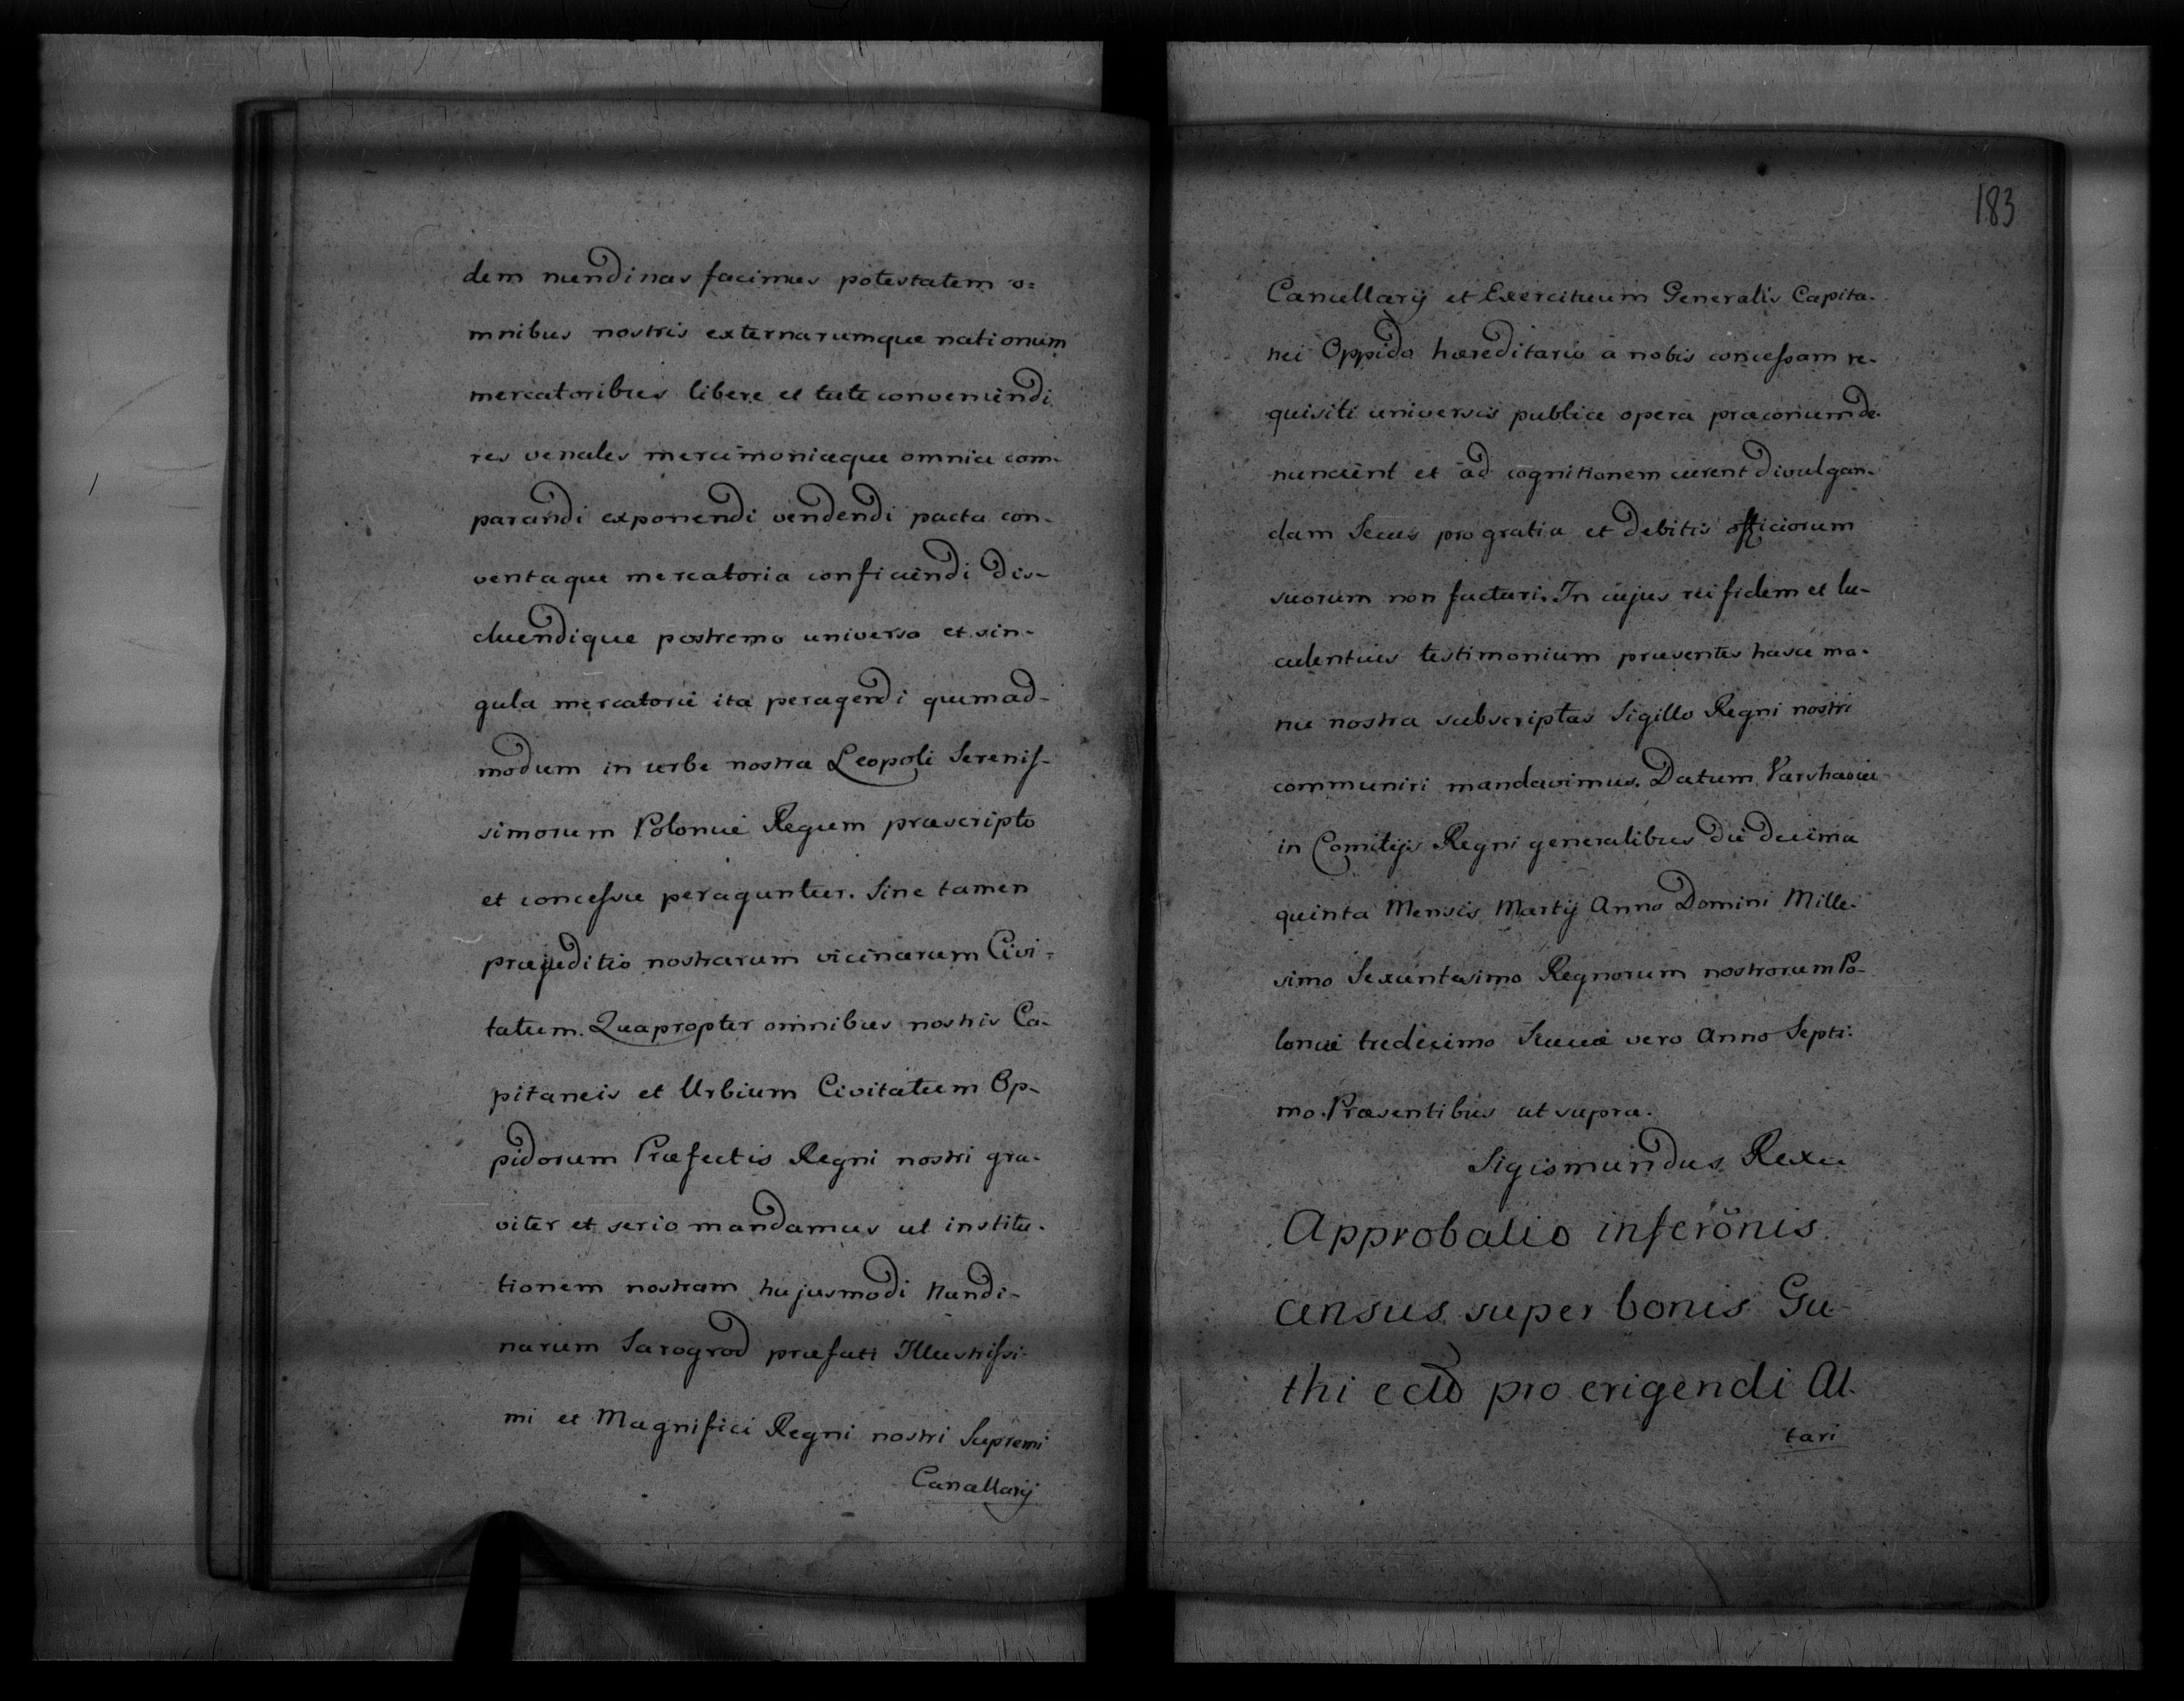 dem nundinas facimus potestatem o=
mnibus nostris externarumque nationum
mercatoribus libere et tute conveniendi
res venales mercimoniaque omnia com-
parandi exponendi vendendi pacta con-
ventaque mercatoria conficiendi dis-
cluendique postremo universa et sin-
gula mercatorie ita peragendi quemad-
modum in urbe nostra Leopoli Serenis-
simorum Poloniæ Regum præscripto
et concessu peraguntur. Sine tamen
præjuditio nostrarum vicinarum Civi=
tatum. Quapropter omnibus nostris Ca-
pitaneis et Urbium Civitatum Op-
pidorum Præfectis Regni nostri gra-
viter et serio mandamus ut institu-
tionem nostram hujusmodi Nundi-
narum Sarogrod præfati Illustrissi-
mi et Magnifici Regni nostri Supremi
Cancellarij
183
Cancellarij et Exercituum Generalis Capita-
nei Oppido hæreditario a nobis concessam re-
quisiti universis publice opera præconum de-
nuncient et ad cognitionem curent divulgan-
dam Secus pro gratia et debitis officiorum
suorum non facturi. In cujus rei fidem et lu-
culentius testimonium præsentes hasce ma-
nu nostra subscriptas Sigillo Regni nostri
communiri mandavimus. Datum Varshaviæ
in Comitijs Regni generalibus die decima
quinta Mensis Martij Anno Domini Mille-
simo Sexcentesimo Regnorum nostrorum Po-
loniæ tredecimo Sueciæ vero Anno Septi-
mo. Præsentibus ut supra.
Sigismundus Rex
Approbatio inserõnis
census super bonis Gu-
thi pro erigendi Al-
tari